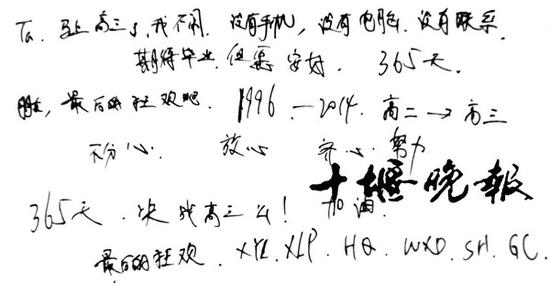 To. 马上高三了,我不闹.没有手机,没有电脑.没有联系.
期待毕业.但愿安好. 365天.
最后的狂欢吧. 1996.—2014. 高二→高三
不分心. 放心 齐心.努力
365天.决战高三么! 加油.
十堰晚报
最后的狂欢. XYL. XLP. HQ. WXD. SH. GC.